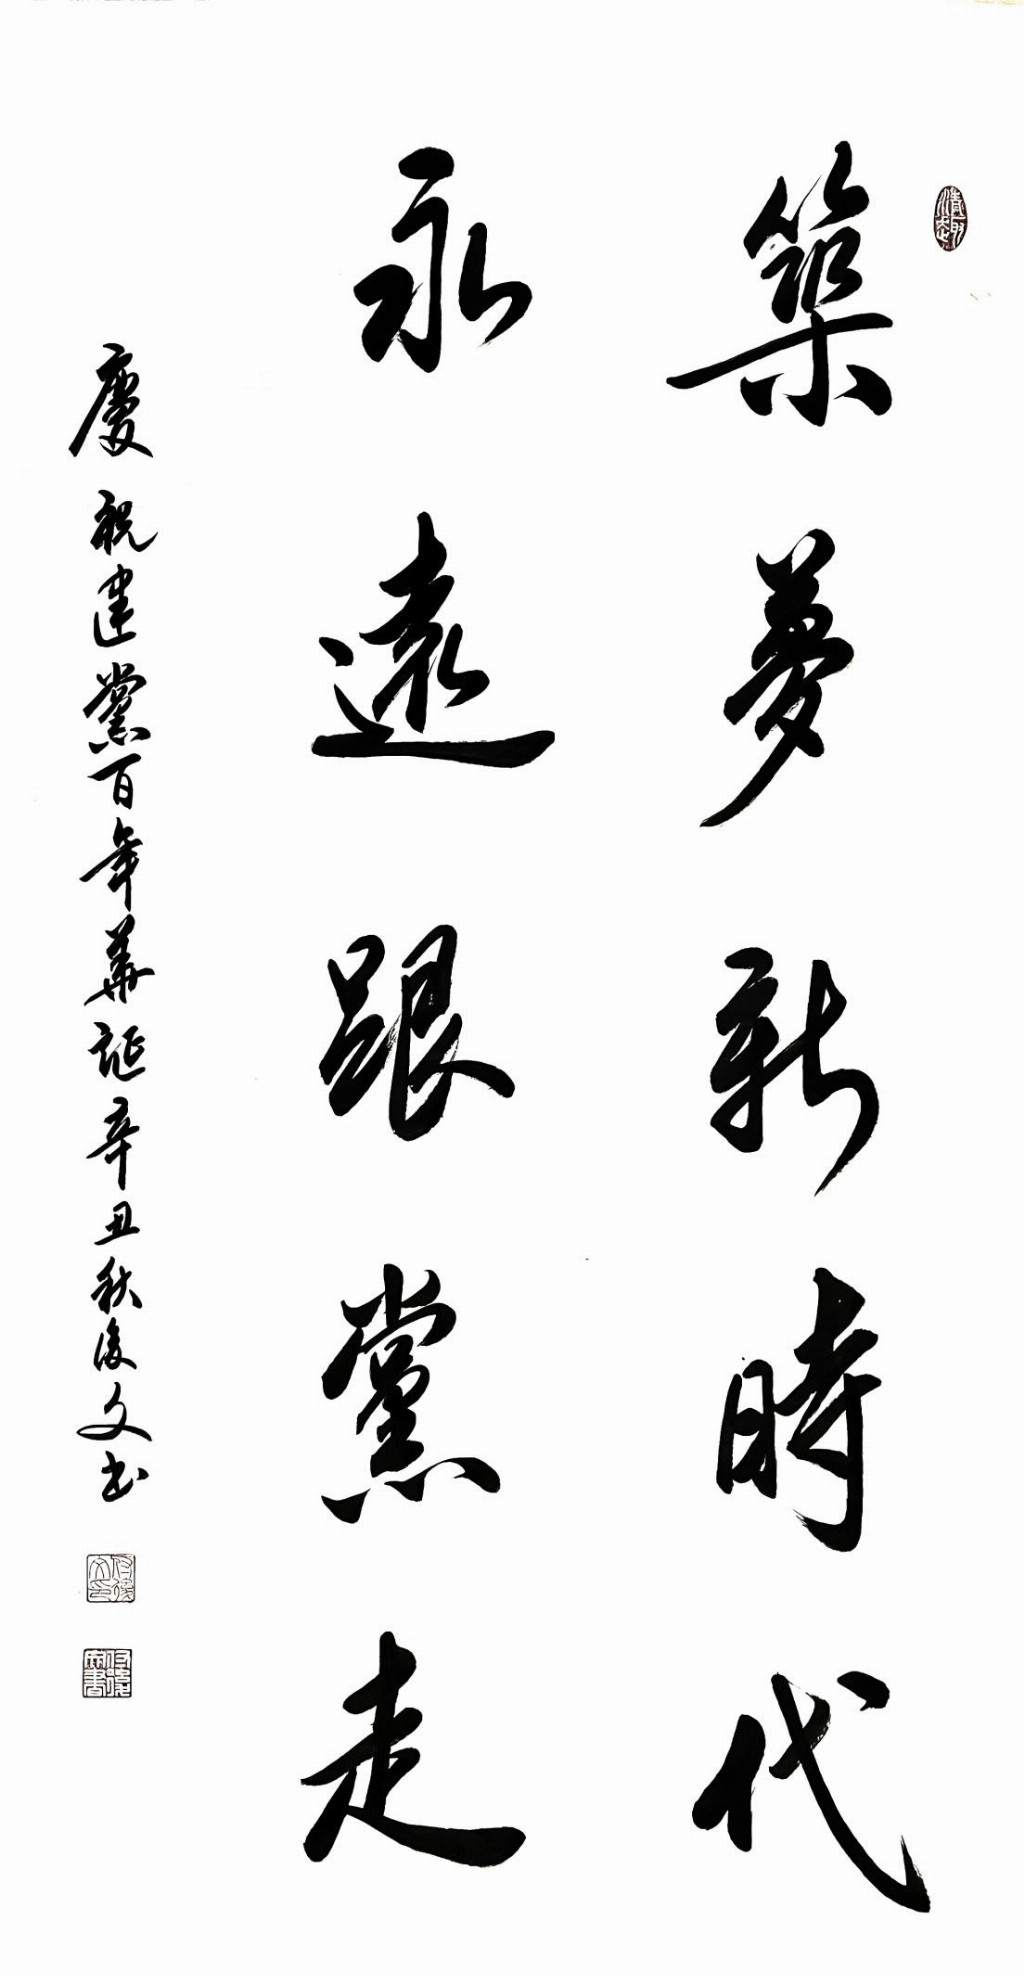 築夢新時代
永遠跟黨走
慶祝建黨百年華誕辛丑秋後文书